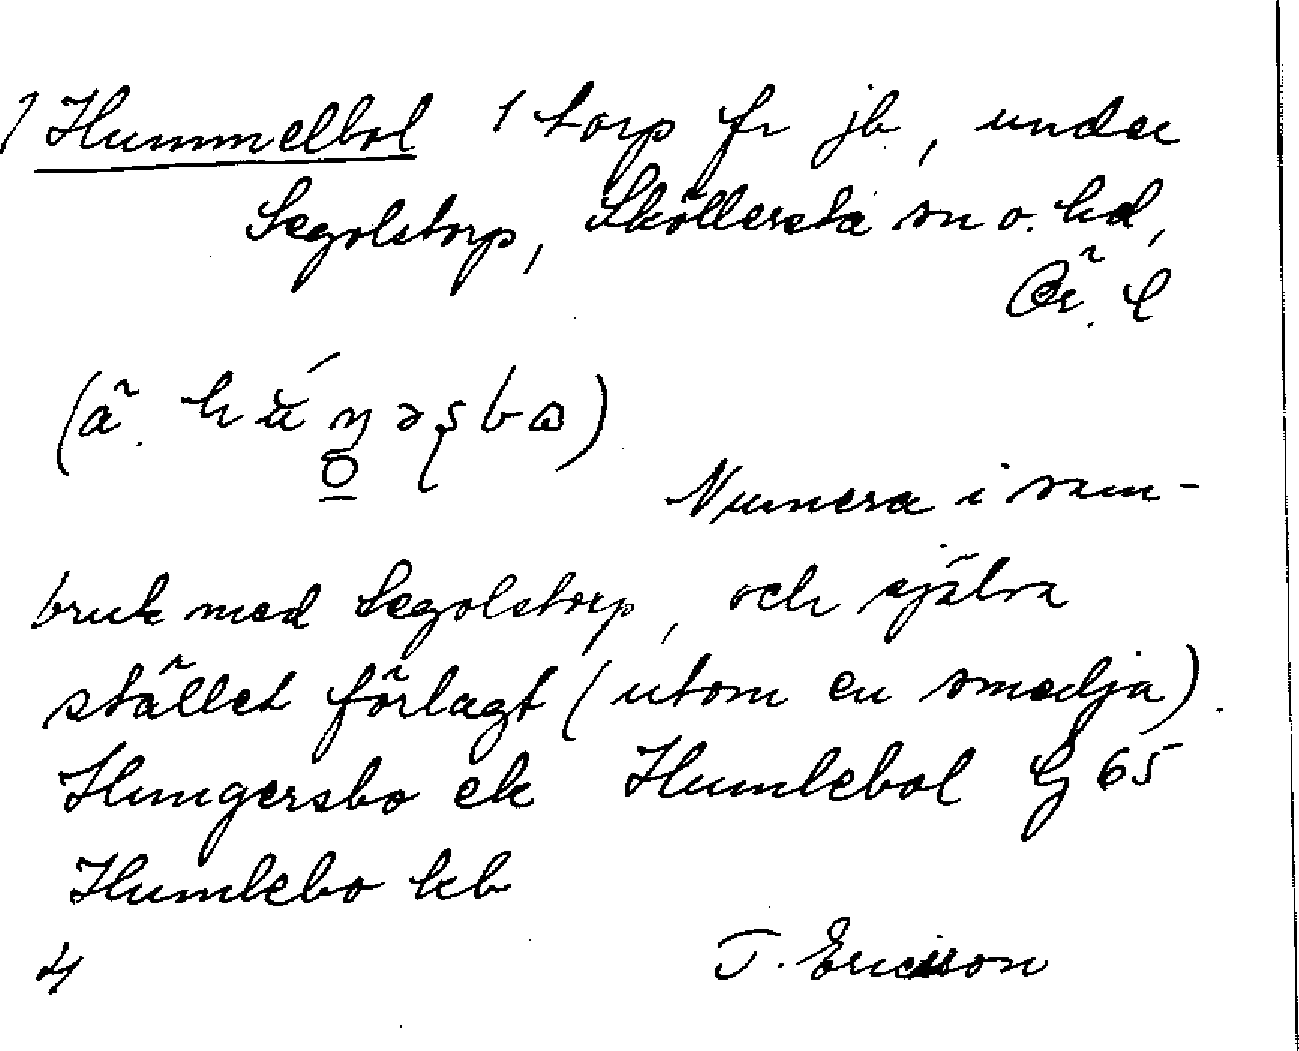 Hummelbol 1 torp fr jb, under
Segolstorp, Sköllersta sn o. hd,
Ör. l
(å. húŋəʂbɷ)
Numera i sam-
bruk med Segolstorp, och själva
stället förlagt (utom en smedja).
Hungersbo ek Humlebol G 65
Humlebo kb
4 T. Ericsson